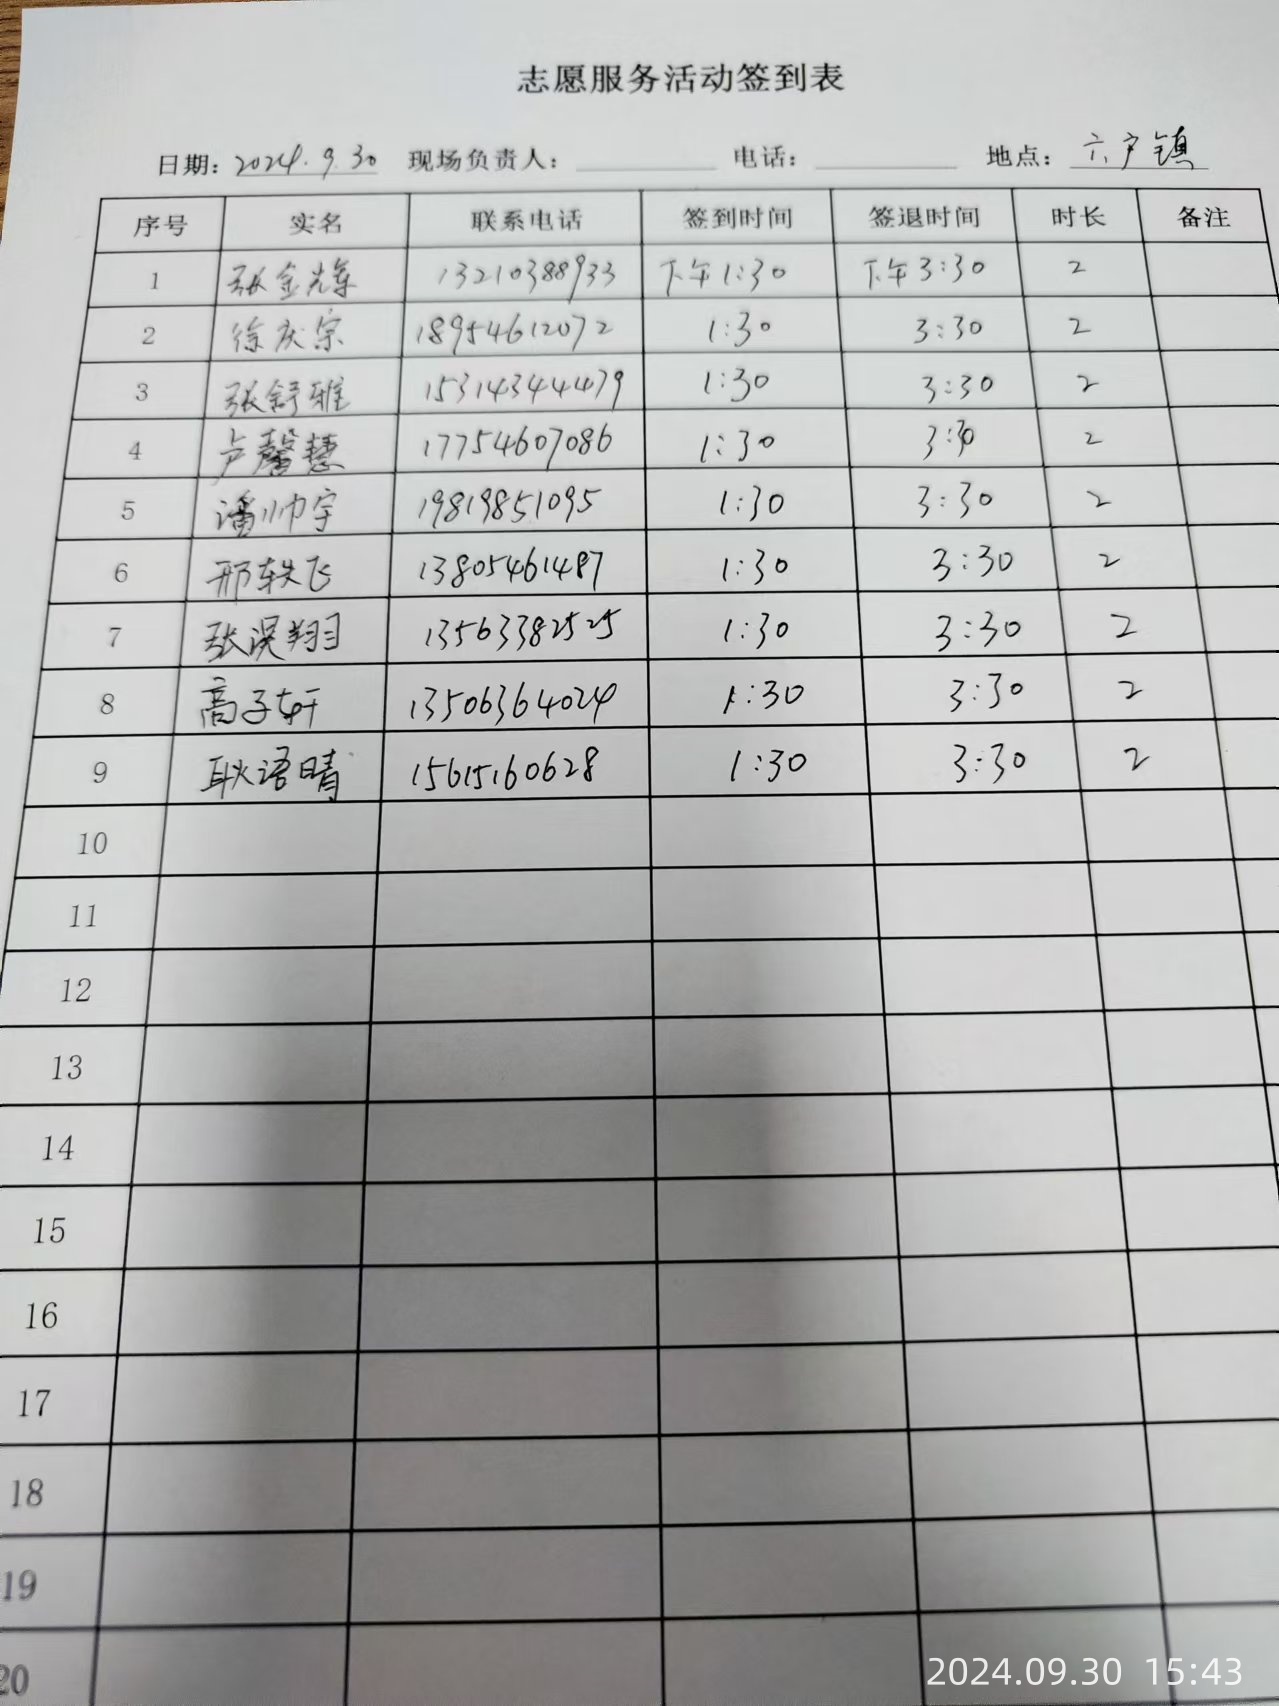 志愿服务活动签到表
日期：2024.9.30 现场负责人： 电话： 地点：六户镇
序号 实名 联系电话 签到时间 签退时间 时长 备注
1 张金辉 13210388933 下午1:30 下午3:30 2
2 徐庆宗 18954612072 1:30 3:30 2
3 张舒雅 15314344479 1:30 3:30 2
4 卢馨慧 17754607086 1:30 3:30 2
5 潘帅宇 19819851095 1:30 3:30 2
6 邢轶飞 13805461487 1:30 3:30 2
7 张淏翔 13563382525 1:30 3:30 2
8 高子轩 13506364024 1:30 3:30 2
9 耿语晴 15615160628 1:30 3:30 2
10
11
12
13
14
15
16
17
18
19
20
2024.09.30 15:43